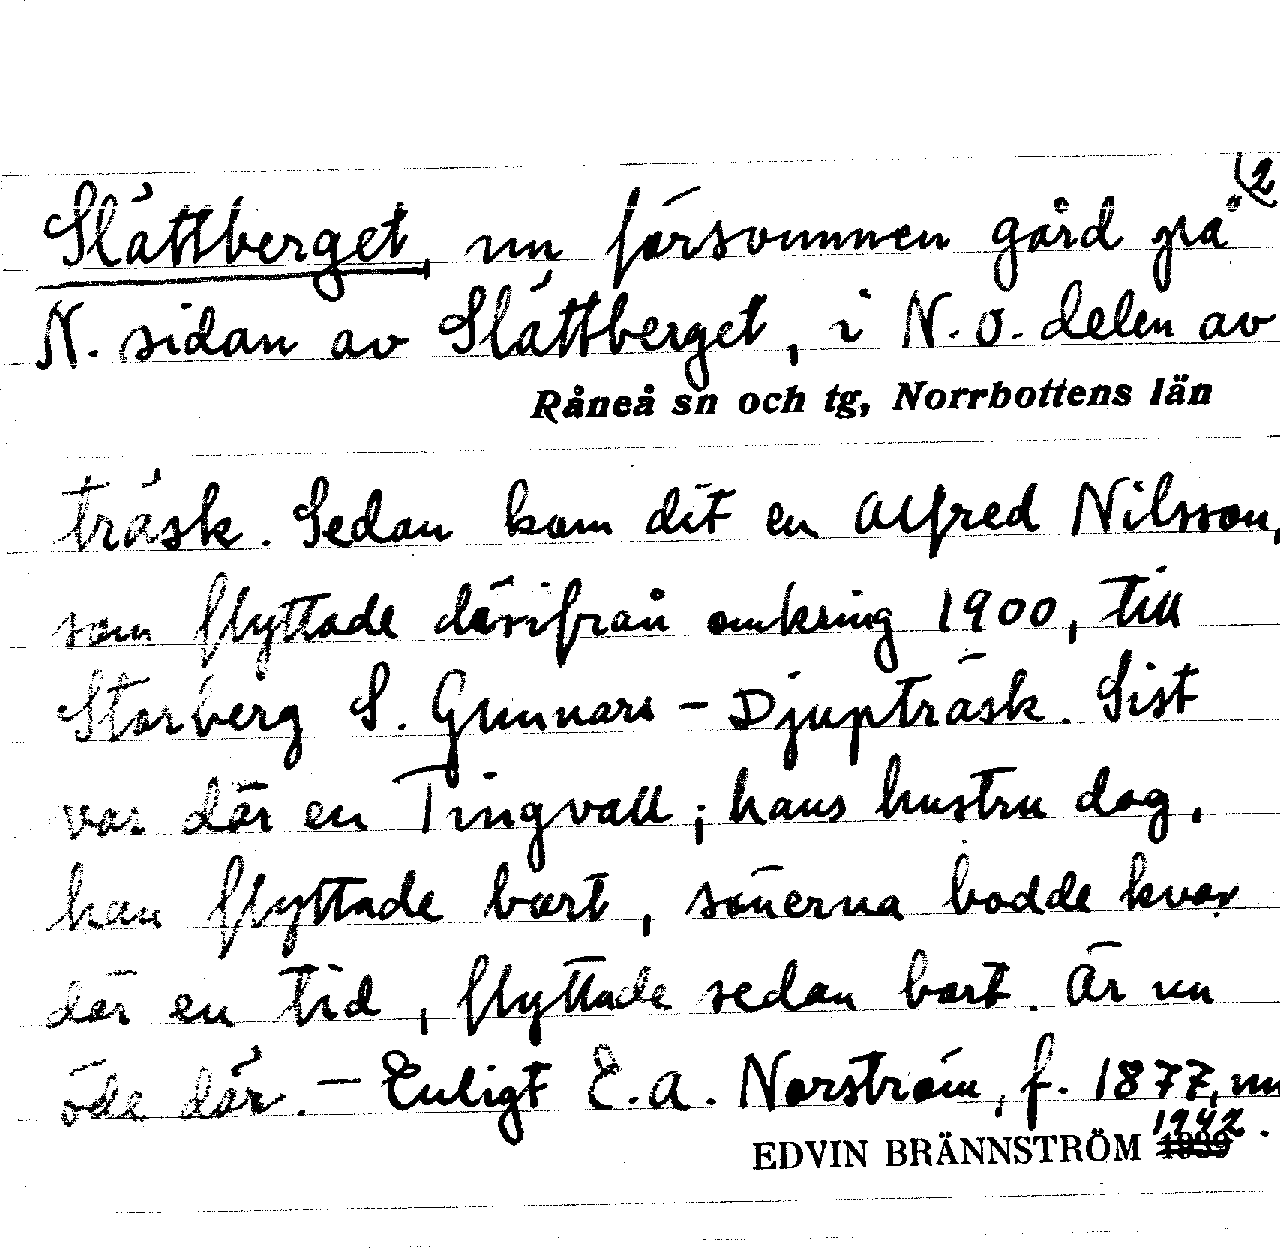 (2
Slättberget, nu försvunnen gård på
N. sidan av Slättberget, i N.O. delen av
Råneå sn och tg, Norrbottens län
träsk. Sedan kom dit en Alfred Nilsson,
som flyttade därifrån omkring 1900, till
Storberg S. Gunnars-Djupträsk. Sist
var där en Tingvall; hans hustru dog,
han flyttade bort, sönerna bodde kvar
där en tid, flyttade sedan bort. Är nu
öde där. - Enligt E.A. Norström, f. 1877, nu
EDVIN BRÄNNSTRÖM 1939 1942.